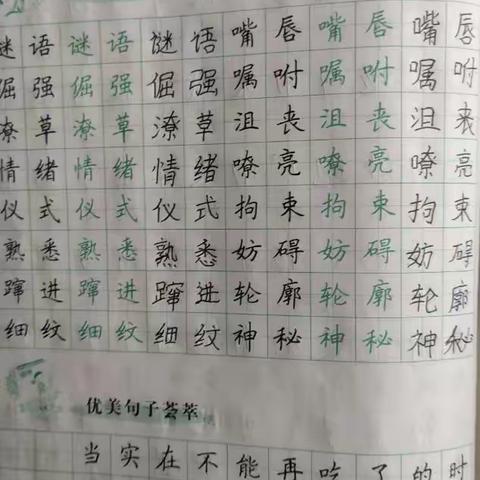 谜语谜语谜语嘴唇嘴唇嘴唇
倔强倔强倔强嘱咐嘱咐嘱咐
潦草潦草潦草沮丧沮丧沮丧
情绪情绪情绪嘹亮嘹亮嘹亮
仪式仪式仪式拘束拘束拘束
熟悉熟悉熟悉妨碍妨碍妨碍
蹿进蹿进蹿进轮廓轮廓轮廓
细纹细纹细纹神秘神秘神秘
优美句子荟萃
当实在不能再吃了的时